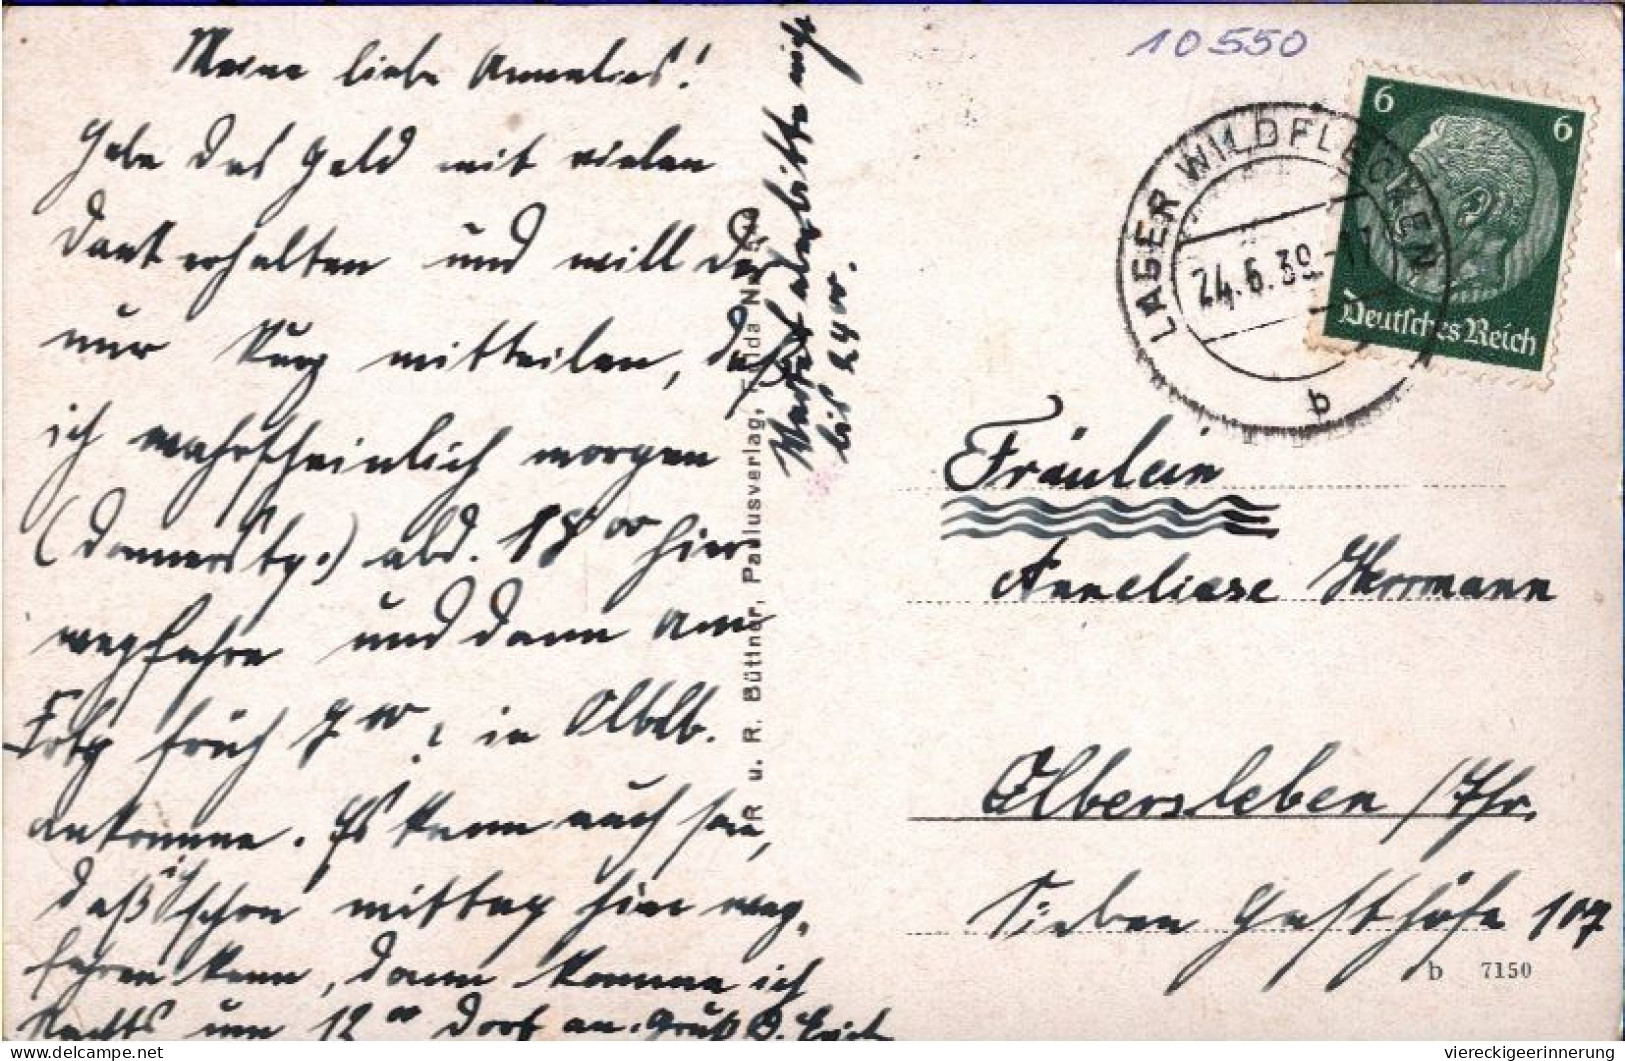 Meine liebe Annelies!
Habe das Geld mit vielen
Dank erhalten und will Dir
nur kurz mitteilen, daß
ich wahrscheinlich morgen
(Donnerstg.) abd. 18 00 hier
wegfahre und dann am
früh 7 00 in Olbslb.
ankomme. Es kann auch sein,
daß ich schon mittag hier weg-
fahren kann, dann komme ich
Nachts um 12 00 dort an. Gruß D. Erich
Wartet aber bitte nicht
bis 24 00.
R u. R. Büttner, Paulusverlag, Fulda
10550
LAGER WILDFLECKEN
24.6.39
b
6 6
Deutsches Reich
Fräulein
Anneliese Herrmann
Olbersleben /Thr.
Sieben Gasthöfe 107
b 7150
viereckigeerinnerung